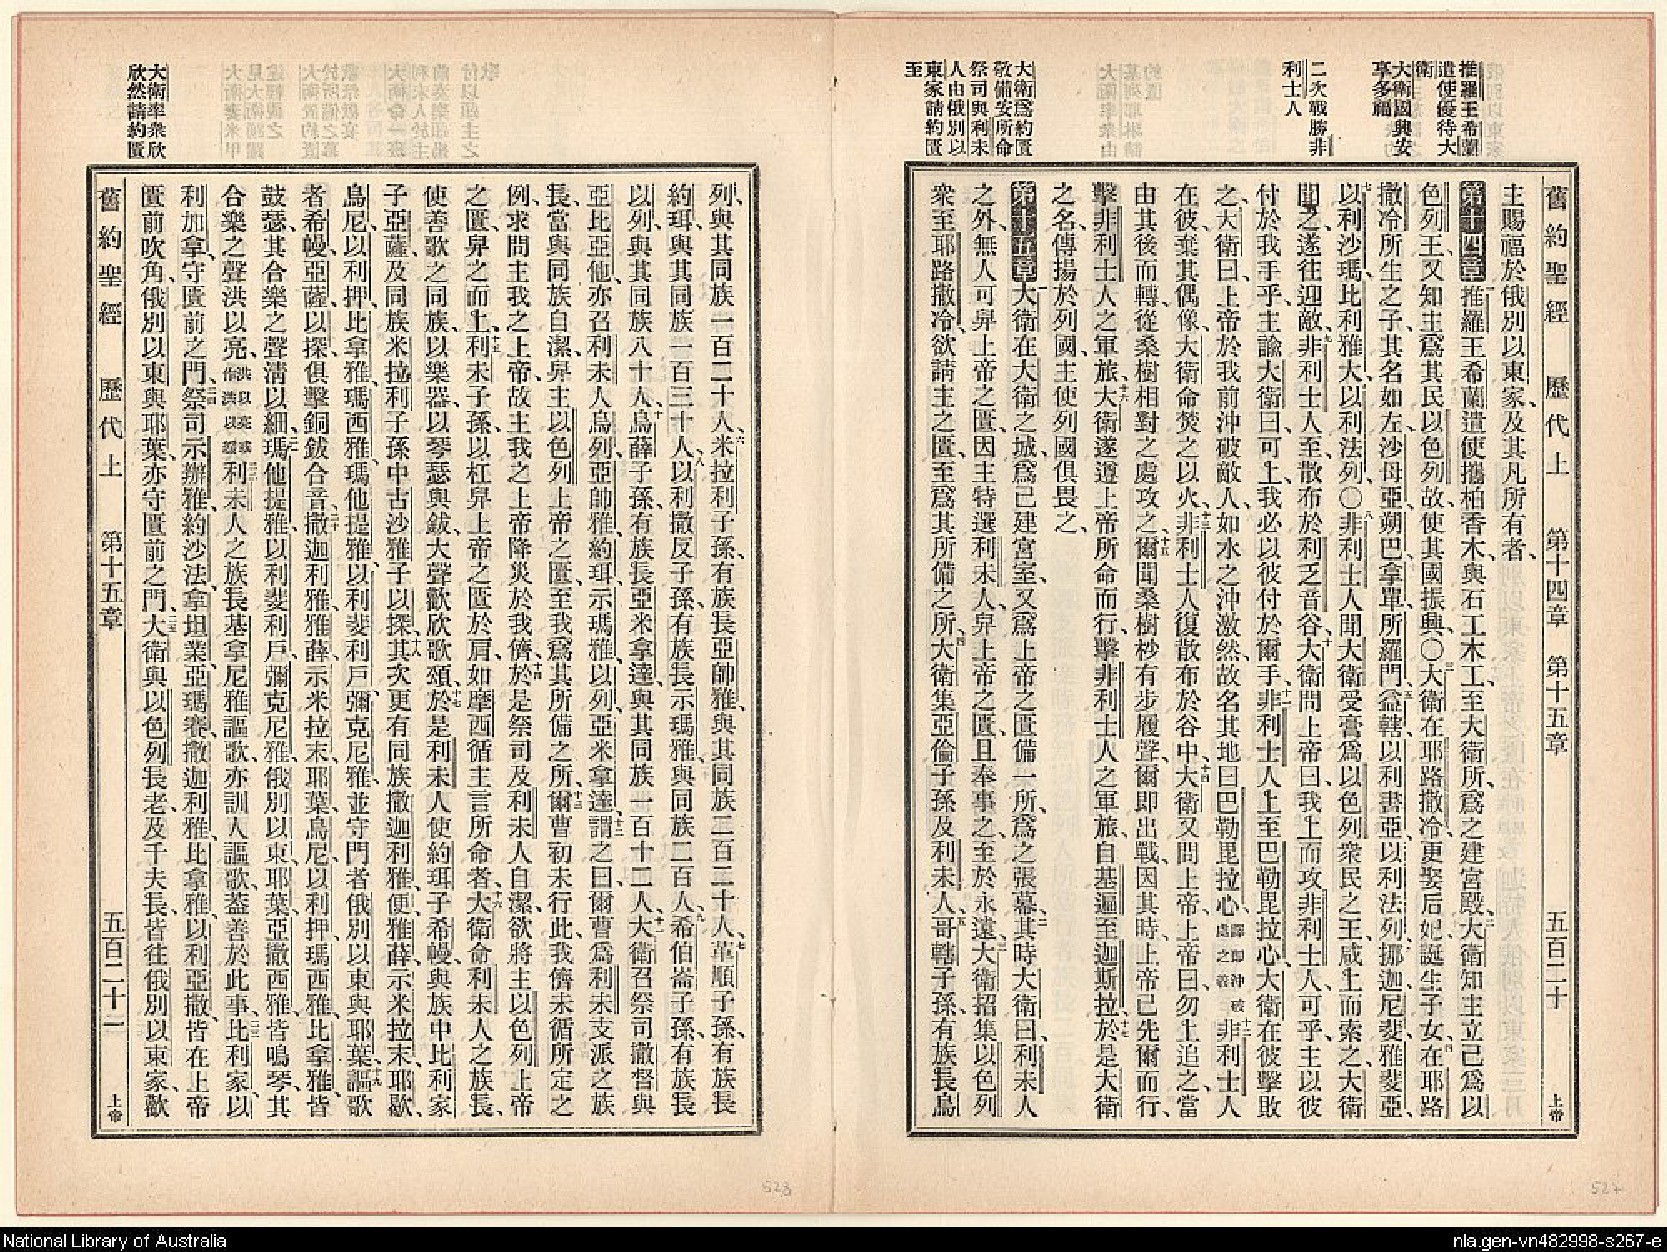 推羅王希蘭
遣使優待大
衛
大衛國興安
享多福
二次戰勝非
利士人
大衛爲約匱
敬備安所命
祭司與利未
人由俄別以
東家請約匱
至
舊約聖經 歷代上 第十四章 第十五章 五百二十 上帝
主賜福於俄別以東家、及其凡所有者、
第十四章 推羅王希蘭遣使攜柏香木、與石工木工、至大衛所、爲之建宮殿、二大衛知主立己爲以
色列王、又知主爲其民以色列故、使其國振興、〇三大衛在耶路撒冷更娶后妃、誕生子女、四在耶路
撒冷所生之子、其名如左、沙母亞、朔巴、拿單、所羅門、五益轄、以利書亞、以利法列、六挪迦、尼斐、雅斐亞、
七以利沙瑪、比利雅大、以利法列、〇八非利士人聞大衛受膏爲以色列衆民之王、咸上而索之、大衛
聞之、遂往迎敵、九非利士人至、散布於利乏音谷、十大衛問上帝曰、我上而攻非利士人可乎、主以彼
付於我手乎、主諭大衛曰、可上、我必以彼付於爾手、十一非利士人上至巴勒毘拉心、大衛在彼擊敗
之、大衛曰、上帝於我前沖破敵人、如水之沖激然、故名其地曰巴勒毘拉心、譯卽沖破處之義十二非利士人
在彼棄其偶像、大衛命焚之以火、十三非利士人復散布於谷中、十四大衛又問上帝、上帝曰、勿上追之、當
由其後而轉、從桑樹相對之處攻之、十五爾聞桑樹杪有步履聲、爾卽出戰、因其時上帝已先爾而行、
擊非利士人之軍旅、十六大衛遂遵上帝所命而行、擊非利士人之軍旅、自基遍至迦斯拉、十七於是大衛
之名、傳揚於列國、主使列國俱畏之、
第十五章 一大衛在大衛之城、爲己建宮室、又爲上帝之匱備一所、爲之張幕、二其時大衛曰、利未人
之外、無人可舁上帝之匱、因主特選利未人、舁上帝之匱、且奉事之、至於永遠、三大衛招集以色列
衆至耶路撒冷、欲請主之匱、至爲其所備之所、四大衛集亞倫子孫及利未人、五哥轄子孫、有族長烏
大衛率衆欣
欣然請約匱
舊約聖經 歷代上 第十五章 五百二十一 上帝
列、與其同族一百二十人、六米拉利子孫、有族長亞帥雅、與其同族二百二十人、七革順子孫、有族長
約珥、與其同族一百三十人、八以利撒反子孫、有族長示瑪雅、與同族二百人、九希伯崙子孫、有族長
以列、與其同族八十人、十烏薛子孫、有族長亞米拿達、與其同族一百十二人、十一大衛召祭司撒督與
亞比亞他、亦召利未人烏列、亞帥雅、約珥、示瑪雅、以列、亞米拿達、十二謂之曰、爾曹爲利未支派之族
長、當與同族自潔、舁主以色列上帝之匱、至我爲其所備之所、十三爾曹初未行此、我儕未循所定之
例求問主我之上帝、故主我之上帝降災於我儕、十四於是祭司及利未人自潔、欲將主以色列上帝
之匱舁之而上、十五利未子孫、以杠舁上帝之匱於肩、如摩西循主言所命者、十六大衛命利未人之族長、
使善歌之同族、以樂器、以琴瑟與鈸、大聲歡欣歌頌、十七於是利未人使約珥子希幔、與族中比利家
子亞薩、及同族米拉利子孫中古沙雅子以探、十八其次更有同族撒迦利雅、便雅薛、示米拉末、耶歇、
烏尼、以利押、比拿雅、瑪西雅、瑪他提雅、以利斐利戶、彌克尼雅、並守門者俄別以東與耶葉、十九謳歌
者希幔、亞薩、以探、俱擊銅鈸合音、二十撒迦利雅、雅薛、示米拉末、耶葉、烏尼、以利押、瑪西雅、比拿雅、皆
鼓瑟、其合樂之聲清以細、二一瑪他提雅、以利斐利戶、彌克尼雅、俄別以東、耶葉、亞撒西雅、皆鳴琴、其
合樂之聲洪以亮、二二利未人之族長基拿尼雅謳歌、亦訓人謳歌、蓋善於此事、二三比利家、以
利加拿、守匱前之門、二四祭司示辦雅、約沙法、拿坦業、亞瑪賽、撒迦利雅、比拿雅、以利亞撒、皆在上帝
匱前吹角、俄別以東與耶葉、亦守匱前之門、二五大衛與以色列長老、及千夫長、皆往俄別以東家、歡
528
527
National Library of Australia
nla.gen-vn482998-s267-e